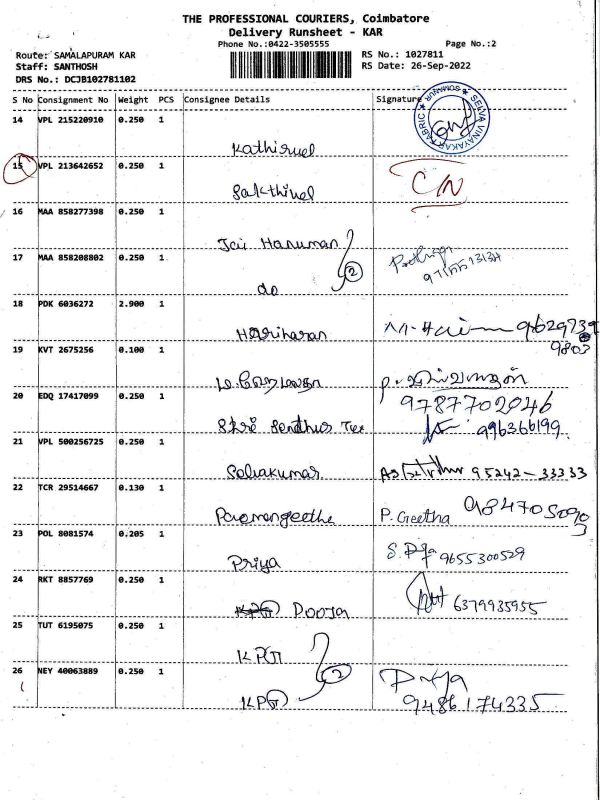 THE PROFESSIONAL COURIERS, Coimbatore
Delivery Runsheet - KAR
Phone No.:0422-3505555
Page No.:2
Route: SAMALAPURAM KAR
RS No.: 1027811
Staff: SANTHOSH
RS Date: 26-Sep-2022
DRS No.: DCJB102781102
S No Consignment No Weight PCS Consignee Details Signature
14 VPL 215220910 0.250 1
Kathirvel
15 VPL 213642652 0.250 1
C/N
Sakthivel
16 MAA 858277398 0.250 1
Jai Hanuman
17 MAA 858208802 0.250 1
2
do
18 PDK 6036272 2.900 1
Hariharan
19 KVT 2675256 0.100 1
9803
20 EDQ 17417099 0.250 1
9787702046
Shre Sendhur Tex
996366199
21 VPL 500256725 0.250 1
95242-33333
22 TCR 29514667 0.130 1
P. Geetha
23 POL 8081574 0.205 1
Priya
9655300529
24 RKT 8857769 0.250 1
Pooja
6379935955
25 TUT 6195075 0.250 1
KPG
26 NEY 40063889 0.250 1
2
Priya
KPG
9486174335